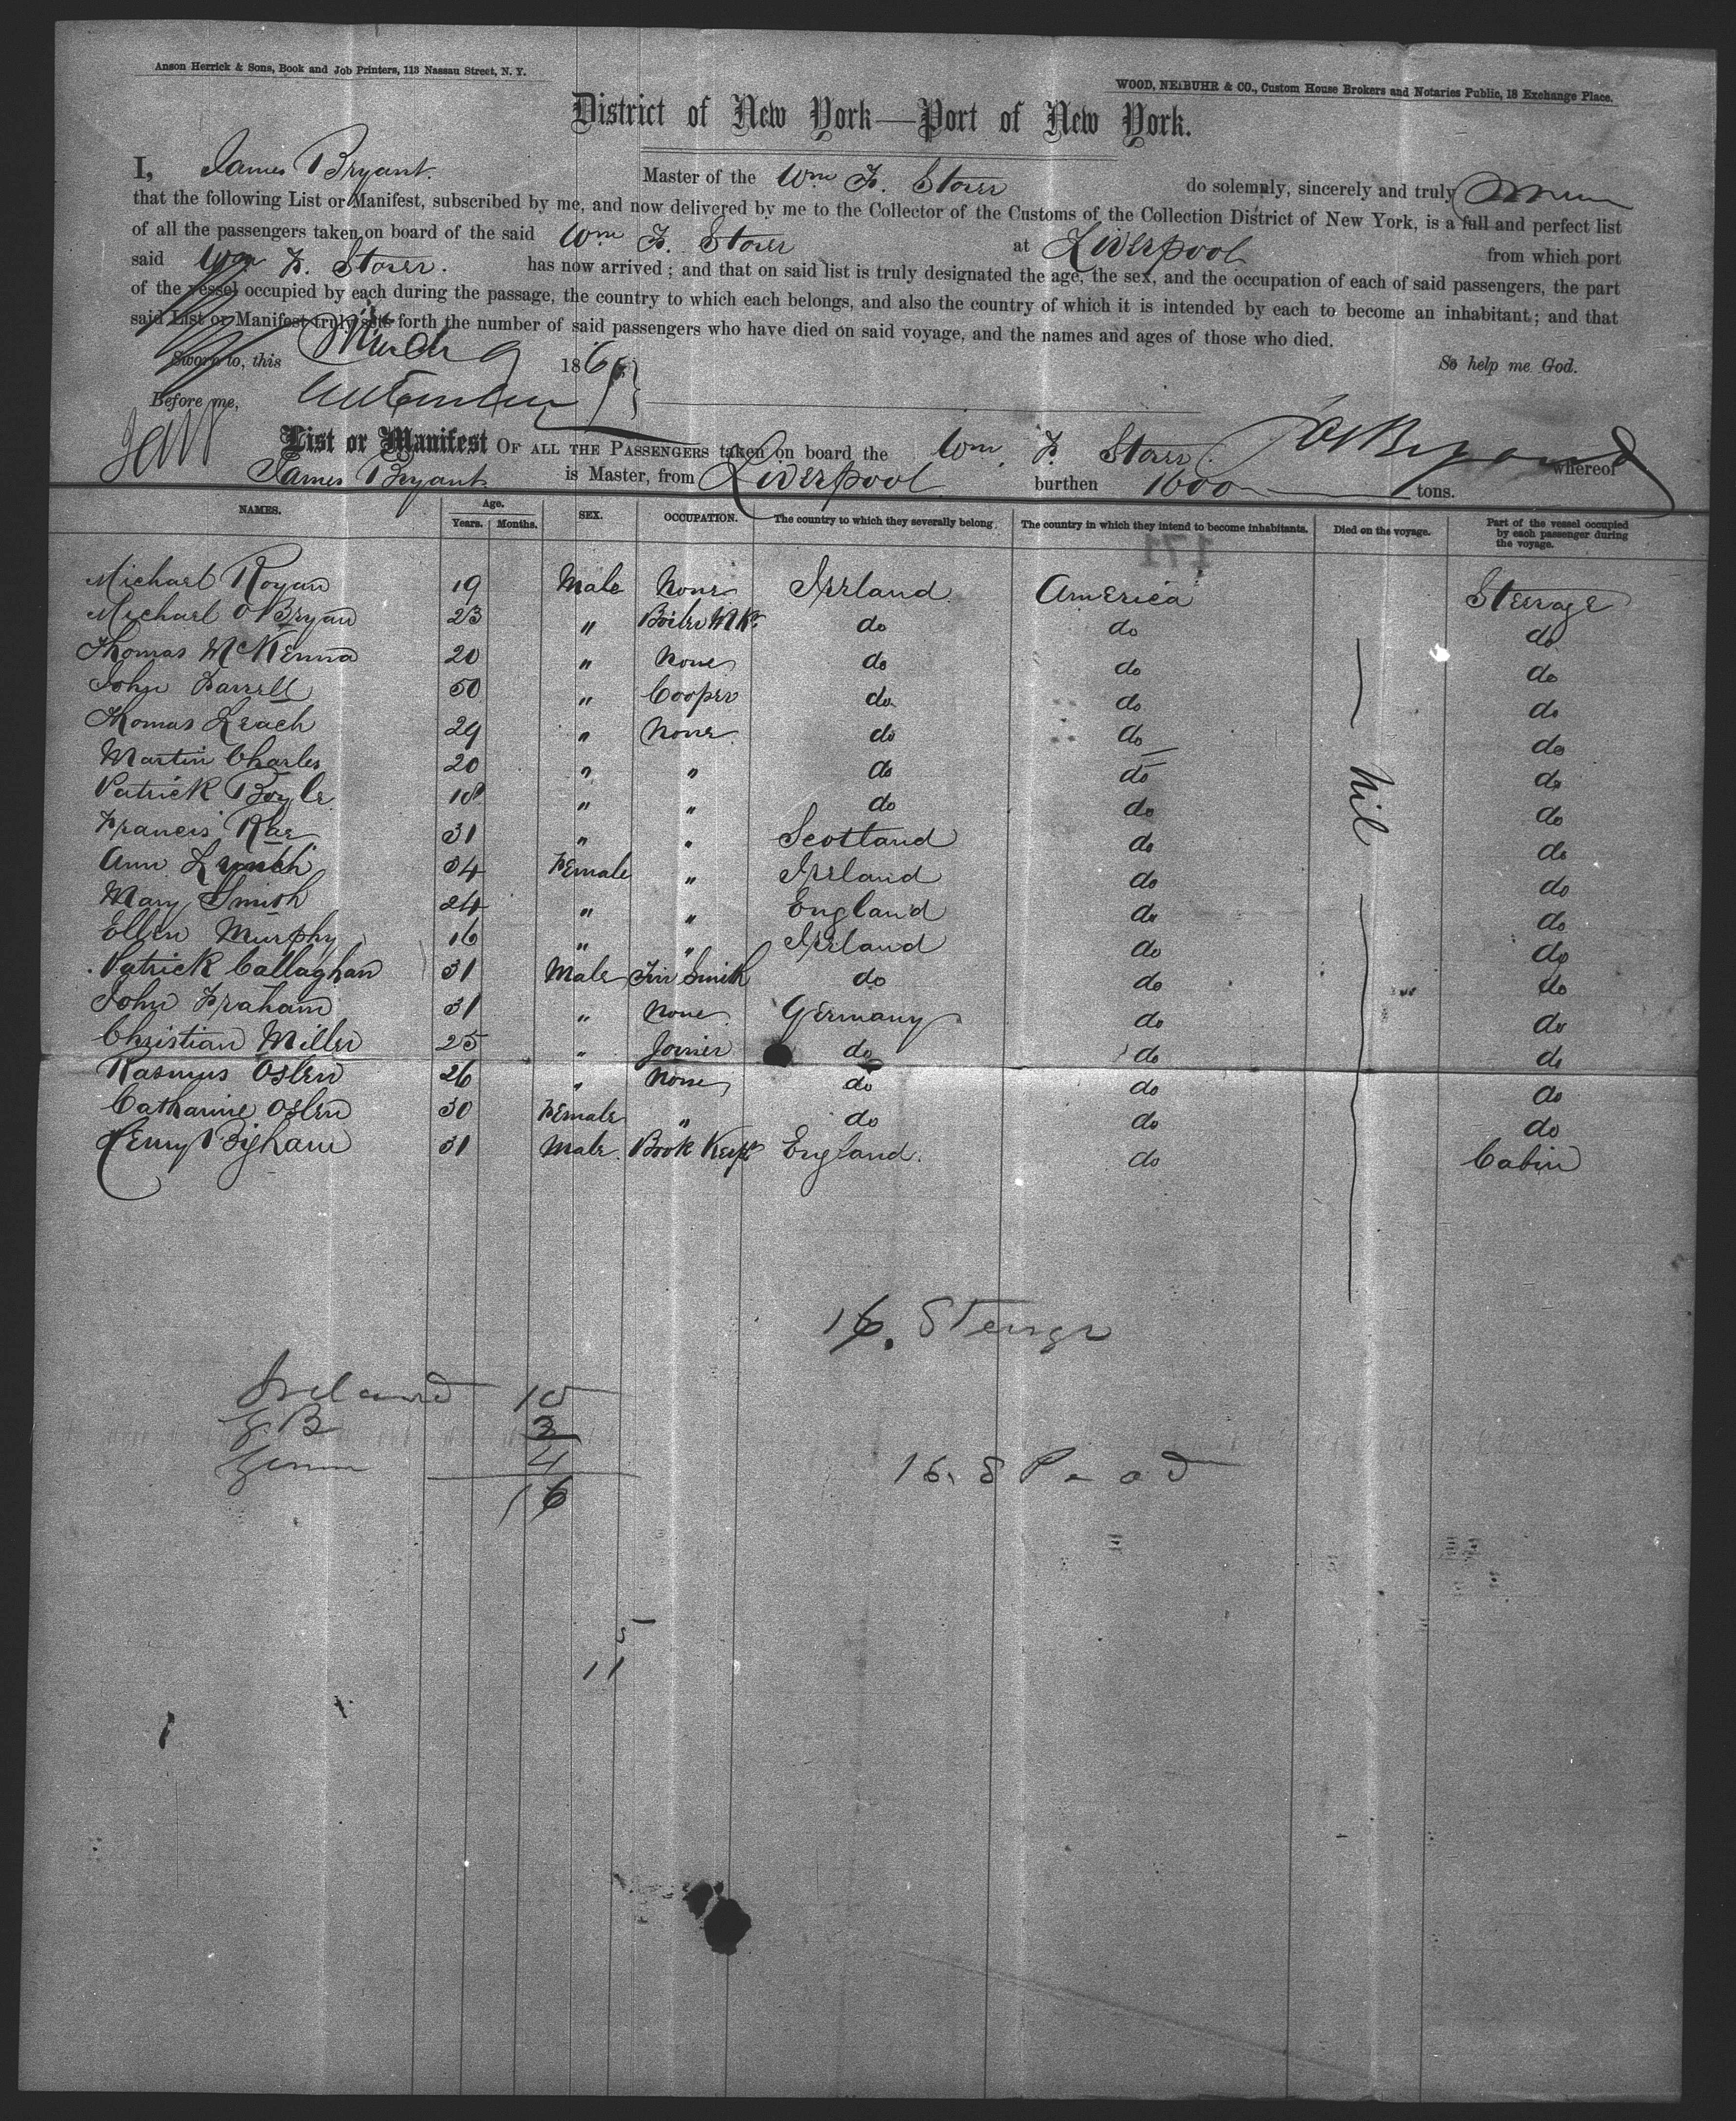 Anson Herrick & Sons, Book and Job Printers, 113 Nassau Street, N. Y.
WOOD, NEIBUHR & CO., Custom House Brokers and Notaries Public, 18 Exchange Place.
District of New York—Port of New York.
I, James Bryant. Master of the Wm F. Storer do solemnly, sincerely and truly
that the following List or Manifest, subscribed by me, and now delivered by me to the Collector of the Customs of the Collection District of New York, is a full and perfect list
of all the passengers taken on board of the said Wm F. Storer at Liverpool from which port
said Wm F. Storer. has now arrived; and that on said list is truly designated the age, the sex, and the occupation of each of said passengers, the part
of the vessel occupied by each during the passage, the country to which each belongs, and also the country of which it is intended by each to become an inhabitant; and that
said List or Manifest truly sets forth the number of said passengers who have died on said voyage, and the names and ages of those who died.
Sworn to, this March 9 186 So help me God.
Before me,
List or Manifest OF ALL THE PASSENGERS taken on board the Wm. F. Storer whereof
James Bryant is Master, from Liverpool burthen 1600 tons.
NAMES. Age. Years. Months. SEX. OCCUPATION. The country to which they severally belong. The country in which they intend to become inhabitants. Died on the voyage. Part of the vessel occupied by each passenger during the voyage.
171
Michael Rogan 19 Male None Ireland America Steerage
Michael O'Bryan 23 " Boiler Mkr do do do
Thomas McKenna 20 " None do do do
John Farrell 50 " Cooper do do do
Thomas Leach 29 " None do do do
Martin Charles 20 " " do do do
Patrick Boyle 18 " " do do do
Francis Rae 31 " " Scotland do do
Ann Lynch 34 Female " Ireland do do
Mary Smith 24 " " England do do
Ellen Murphy 16 " " Ireland do do
Patrick Callaghan 31 Male Tin Smith do do do
John Fraham 31 " None Germany do do
Christian Miller 25 " Joiner do do do
Rasmus Oslen 26 " None do do do
Catharine Oslen 30 Female " do do do
Henry Bigham 31 Male Book Keepr England. do Cabin
Nil
16. Steerage
Ireland 10
G B 2
Germ 4
16
5
11